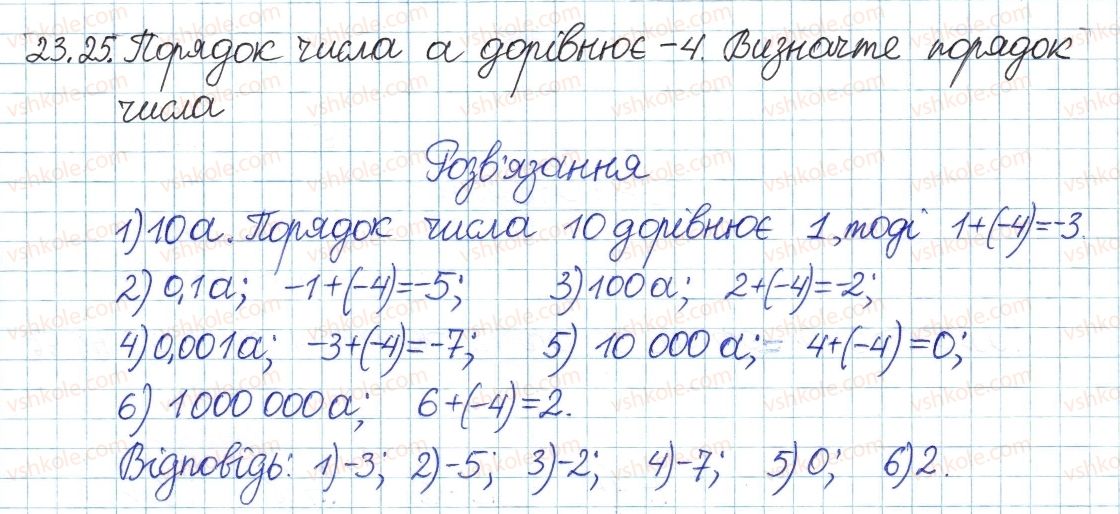 23.25. Порядок числа а дорівнює -4. Визначте порядок
числа
Розв'язання
1) 10а. Порядок числа 10 дорівнює 1, тоді 1+(-4)=-3.
2) 0,1а; -1+(-4)=-5; 3) 100а; 2+(-4)=-2;
4) 0,001а; -3+(-4)=-7; 5) 10 000 а; 4+(-4)=0;
6) 1000 000а; 6+(-4)=2.
Відповідь: 1)-3; 2)-5; 3)-2; 4)-7; 5) 0; 6) 2.